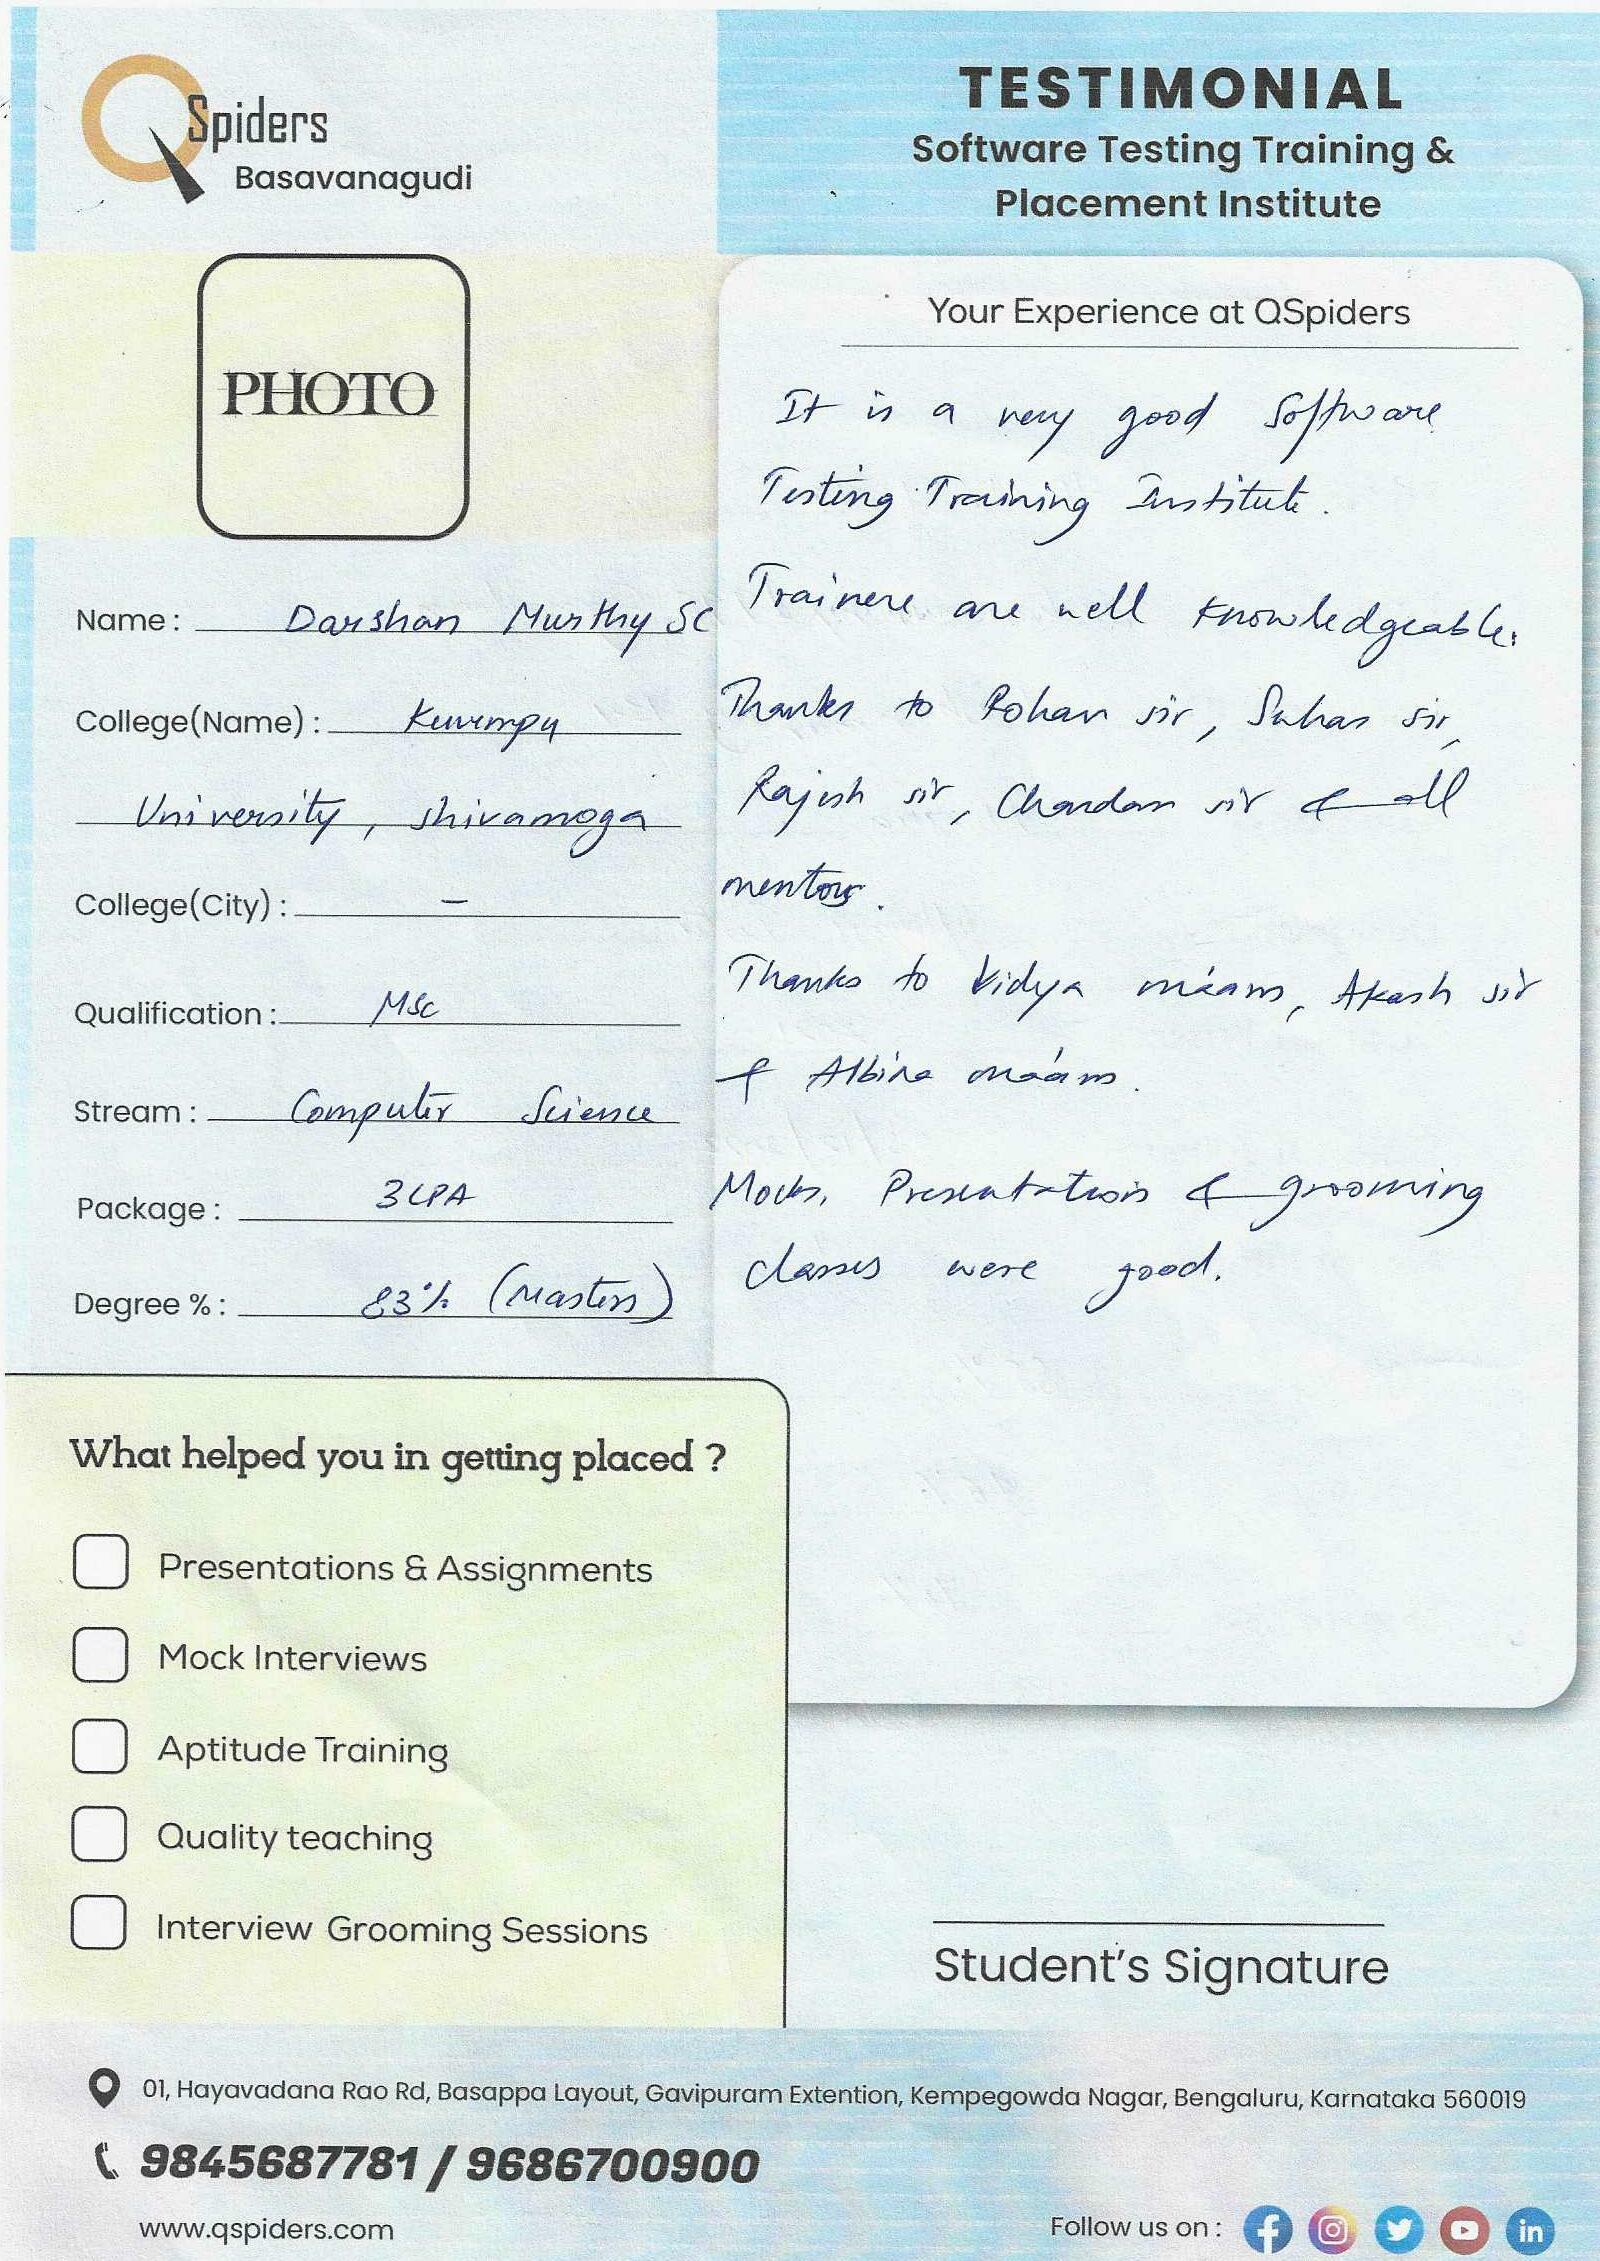 QSpiders
Basavanagudi
TESTIMONIAL
Software Testing Training &
Placement Institute
PHOTO
Name : Darshan Murthy SC
College(Name) : Kuvempu
University, Shivamoga
College(City) : –
Qualification : MSc
Stream : Computer Science
Package : 3LPA
Degree % : 83% (Masters)
Your Experience at QSpiders
It is a very good Software
Testing Training Institute.
Trainers are well knowledgeable.
Thanks to Rohan sir, Suhas sir,
Rajesh sir, Chandan sir & all
mentors.
Thanks to Vidya ma'am, Akash sir
& Albina ma'am.
Mocks, Presentations & grooming
classes were good.
What helped you in getting placed ?
Presentations & Assignments
Mock Interviews
Aptitude Training
Quality teaching
Interview Grooming Sessions
Student's Signature
01, Hayavadana Rao Rd, Basappa Layout, Gavipuram Extention, Kempegowda Nagar, Bengaluru, Karnataka 560019
9845687781 / 9686700900
www.qspiders.com
Follow us on :